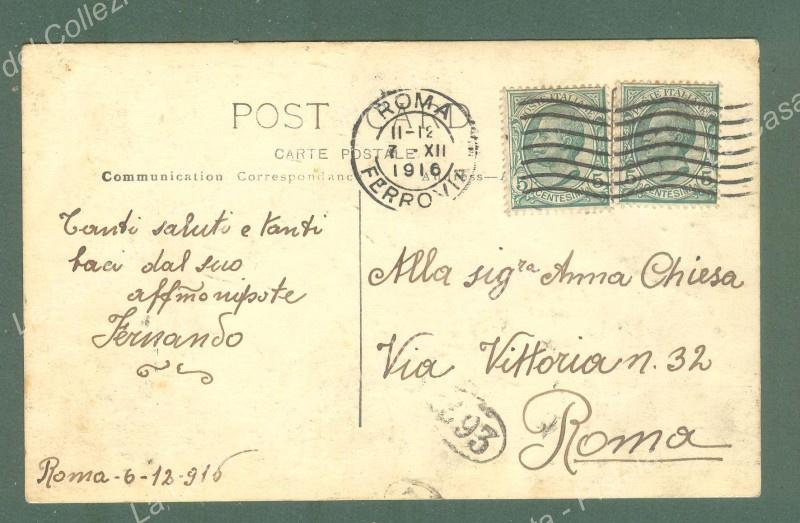 POST CARD
CARTE POSTALE
Communication Correspondance Address—
ROMA
11-12
7 - XII
1916
FERROVIA
POSTE ITALIANE
5 CENTESIMI 5
POSTE ITALIANE
5 CENTESIMI 5
Tanti saluti e tanti
baci dal suo
affmo nipote
Fernando
Alla sigra Anna Chiesa
Via Vittoria n. 32
Roma
93
Roma-6-12-916
del Collez
Casa